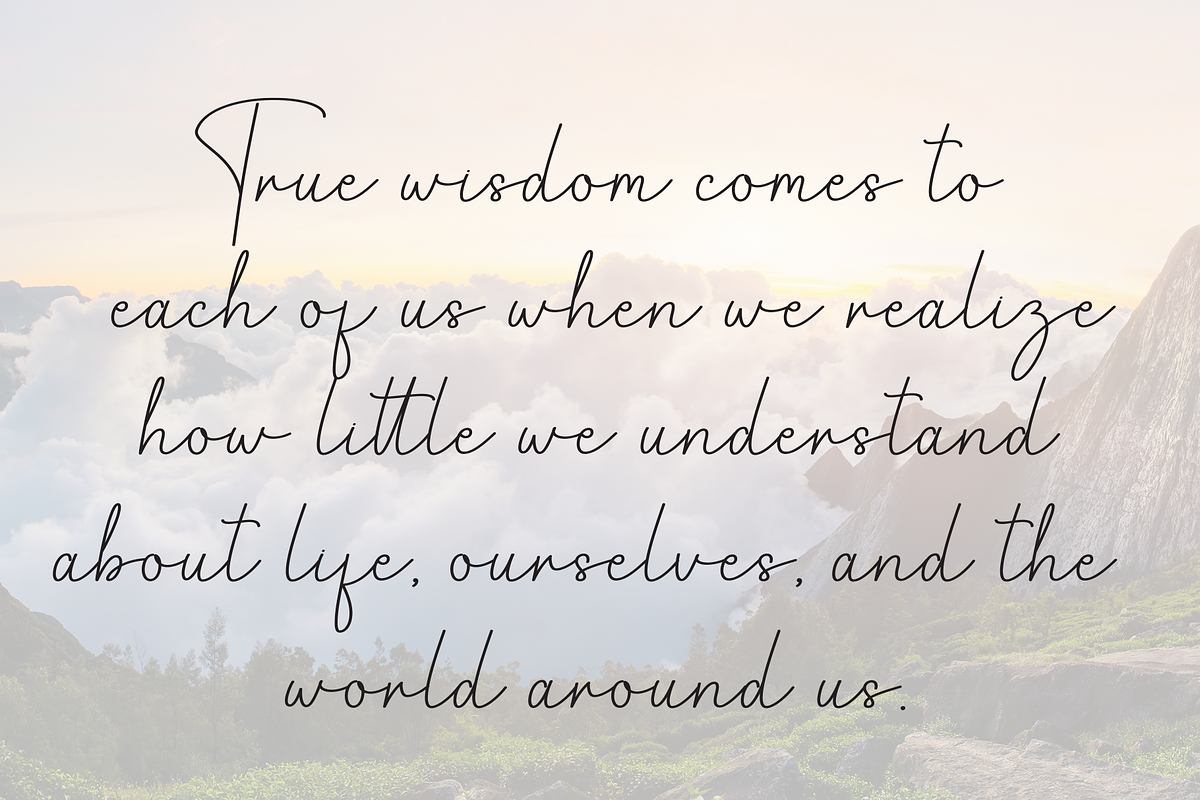 True wisdom comes to
each of us when we realize
how little we understand
about life, ourselves, and the
world around us.